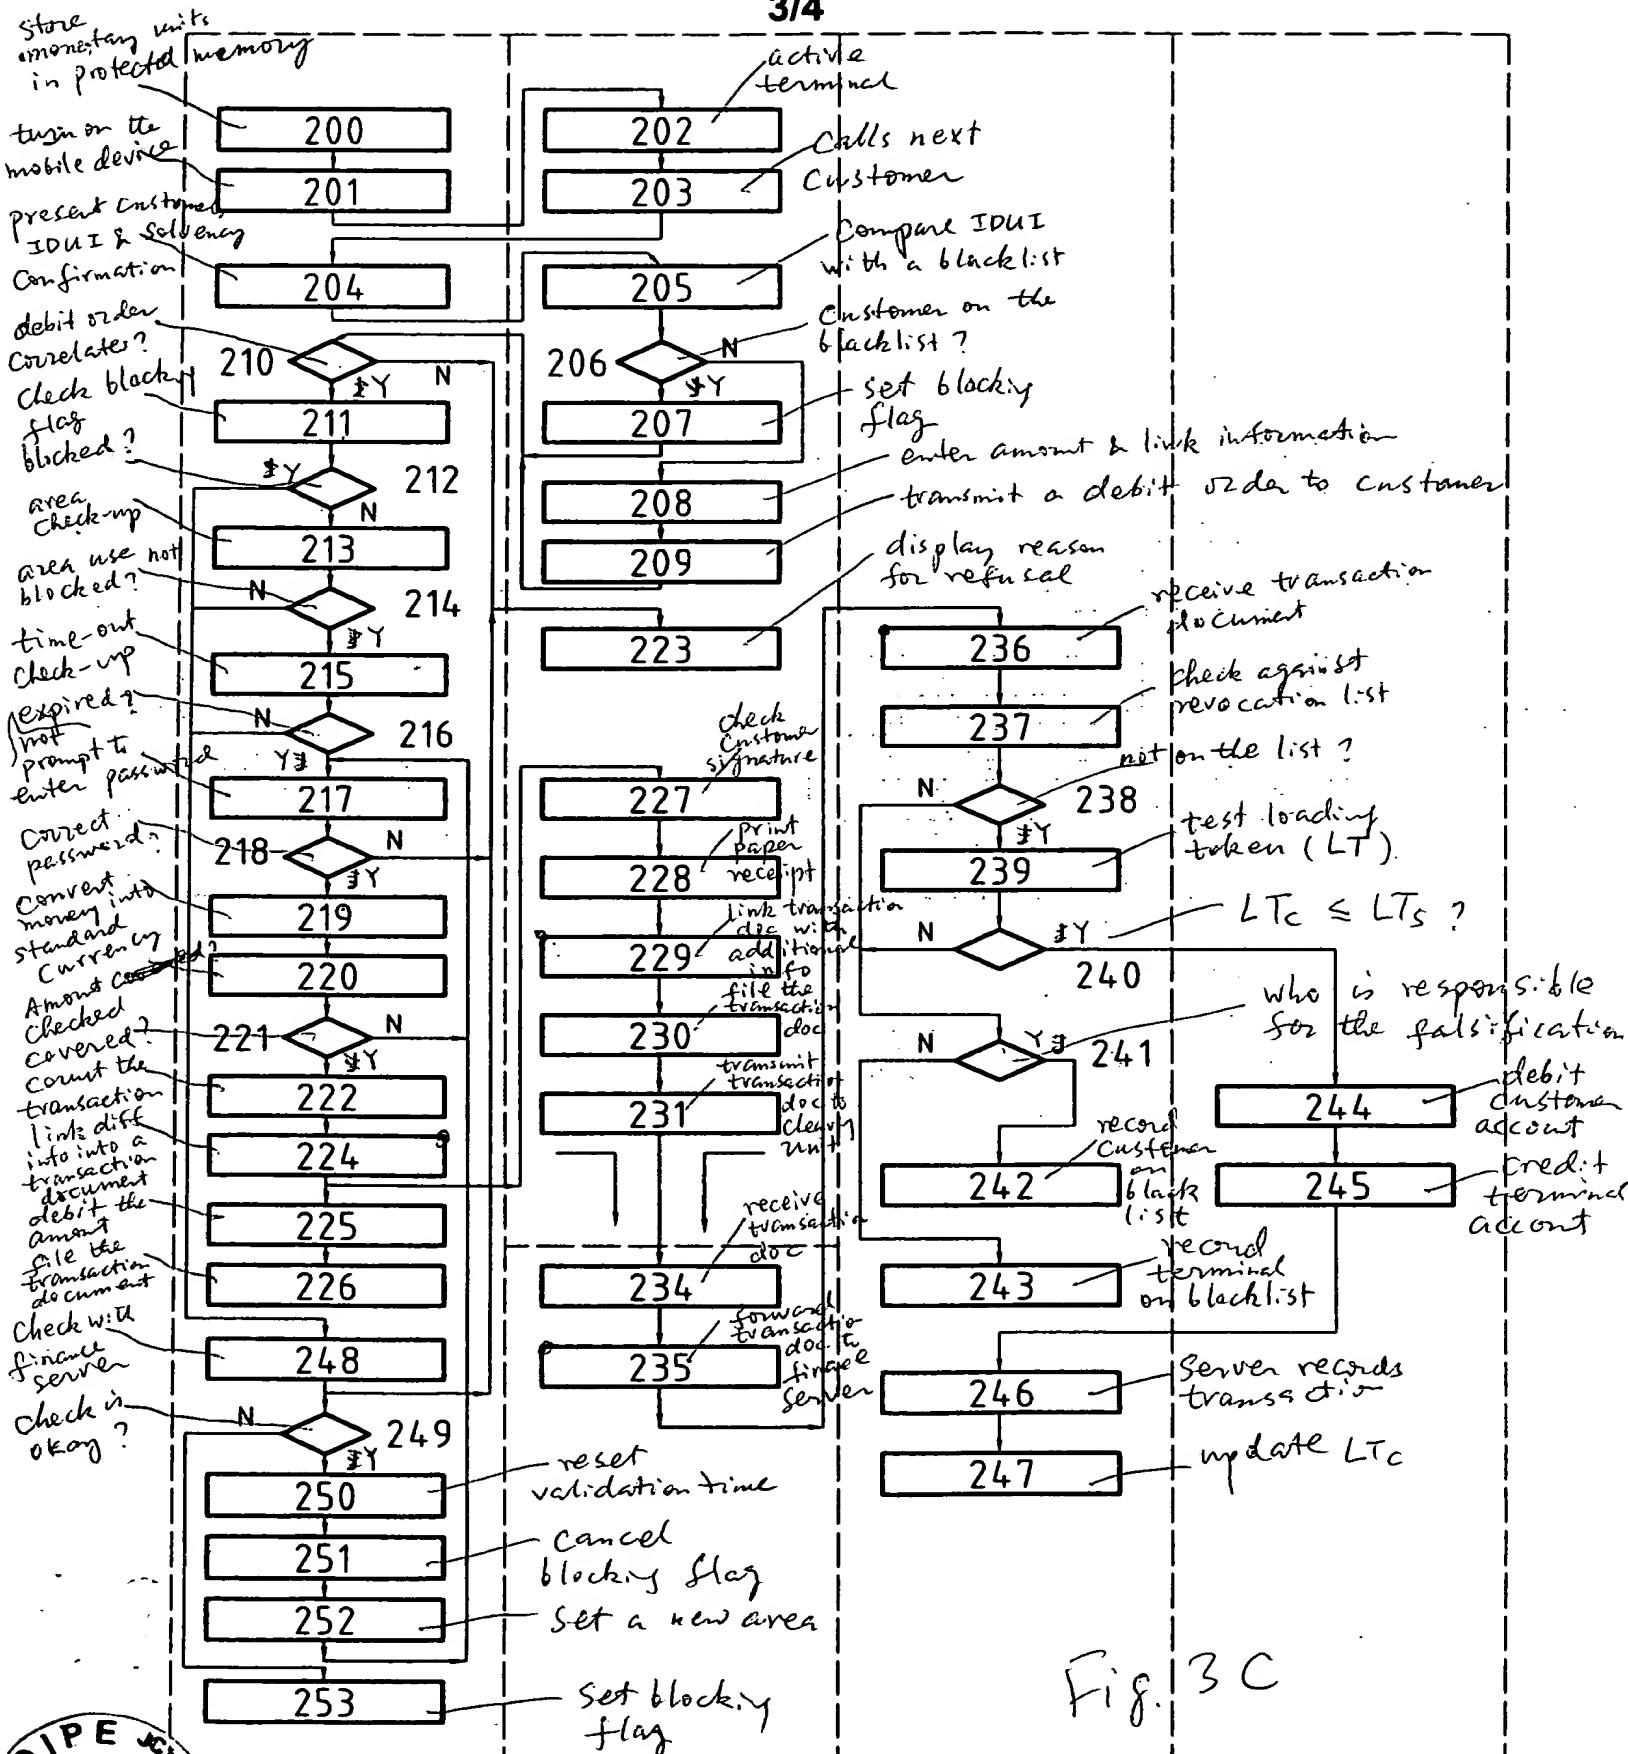 3/4
Store
monetary units
in protected memory
200
turn on the
mobile device
201
present customer
IDUI & solvency
confirmation
204
debit order
correlates?
210
N
Y
check blocking
flag
211
blocked?
Y
212
N
area
check-up
213
area use not
blocked?
N
214
Y
time-out
check-up
215
expired?
not
N
216
Y
prompt to
enter password
217
correct
password?
218
N
Y
convert
money into
standard
currency
219
Amount
checked
220
covered?
221
N
Y
count the
transaction
222
link diff
info into a
transaction
document
224
debit the
amount
225
file the
transaction
document
226
check with
finance
server
248
check is
okay?
N
249
Y
250
reset
validation time
251
cancel
blocking flag
252
set a new area
253
set blocking
flag
active
terminal
202
calls next
customer
203
compare IDUI
with a blacklist
205
customer on the
blacklist?
206
N
Y
set blocking
flag
207
enter amount & link information
208
transmit a debit order to customer
209
display reason
for refusal
223
check
customer
signature
227
print
paper
receipt
228
link transaction
doc with
additional
info
229
file the
transaction
doc
230
transmit
transaction
doc to
clearing
unit
231
receive
transaction
doc
234
forward
transaction
doc to
finance
server
235
receive transaction
document
236
check against
revocation list
237
not on the list?
N
238
Y
test loading
token (LT)
239
LTc ≤ LTs ?
N
Y
240
who is responsible
for the falsification
N
Y
241
record
customer
on
black
list
242
record
terminal
on blacklist
243
debit
customer
account
244
credit
terminal
account
245
Server records
transaction
246
update LTc
247
Fig. 3C
IPE JC